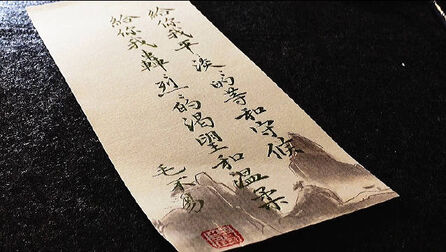 給你我平淡的等和守候
給你我轟烈的渴望和溫柔
毛不易